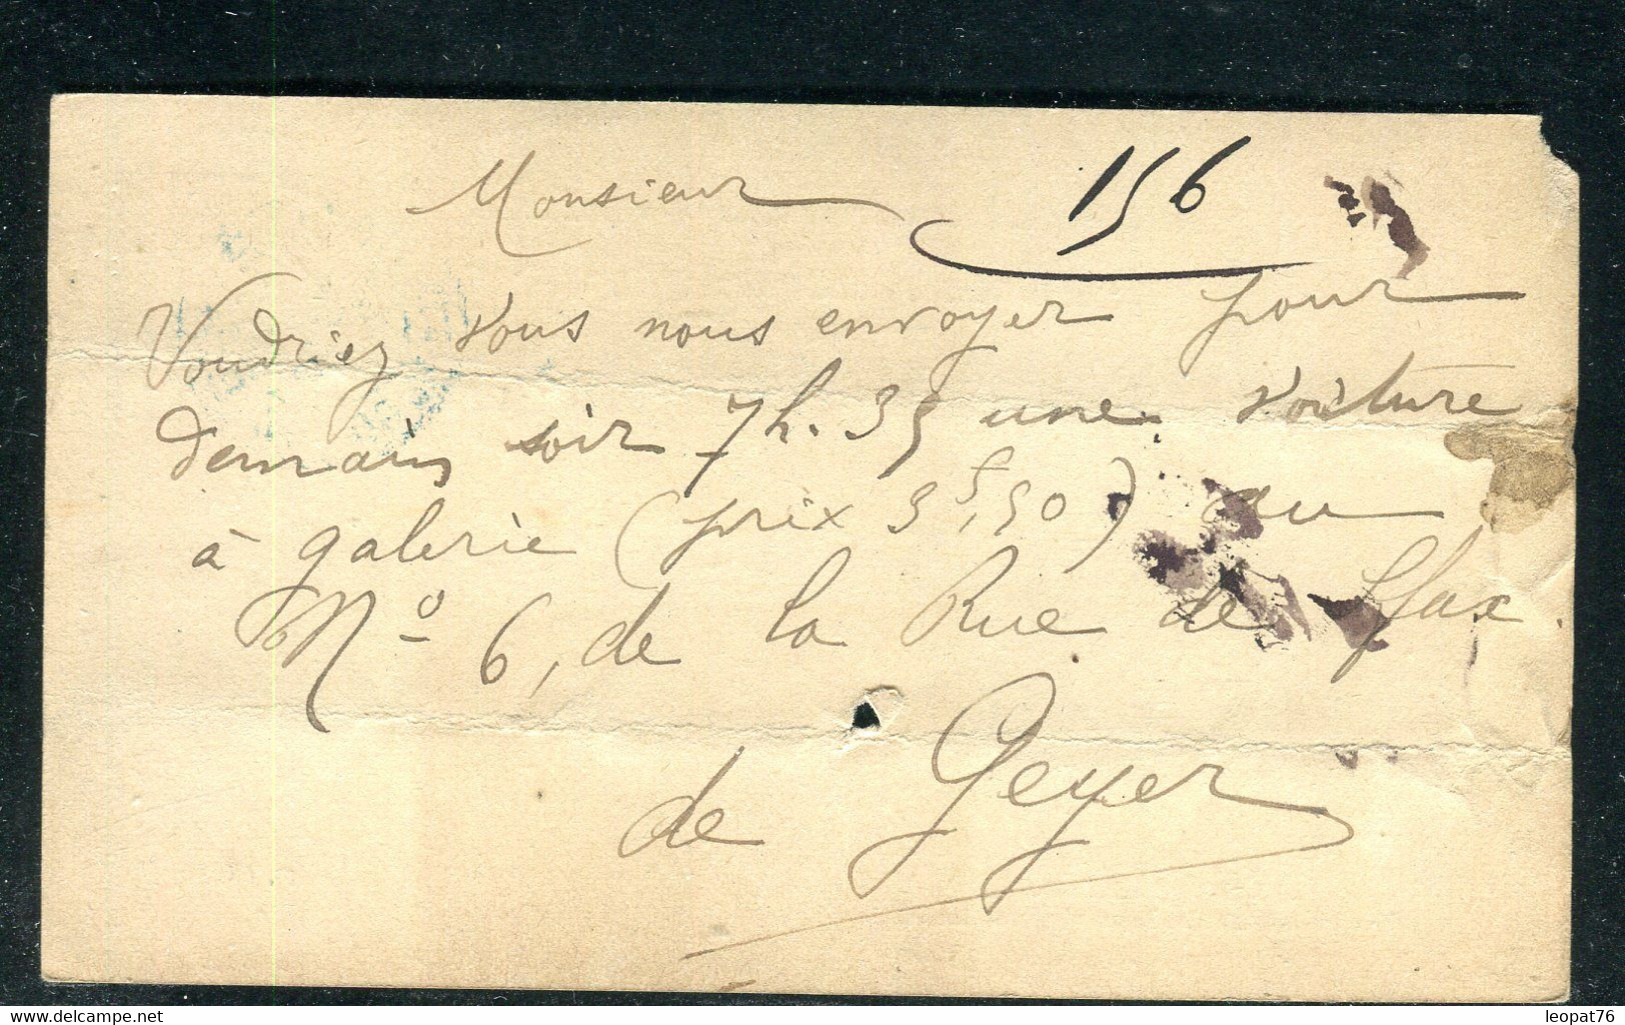 156
Monsieur
Voudriez vous nous envoyer pour
demain soir 7h. 35 une voiture
à galerie (prix 3f,50) au
No 6, de la Rue de Sfax.
de Geyer
www.delcampe.net
leopat76